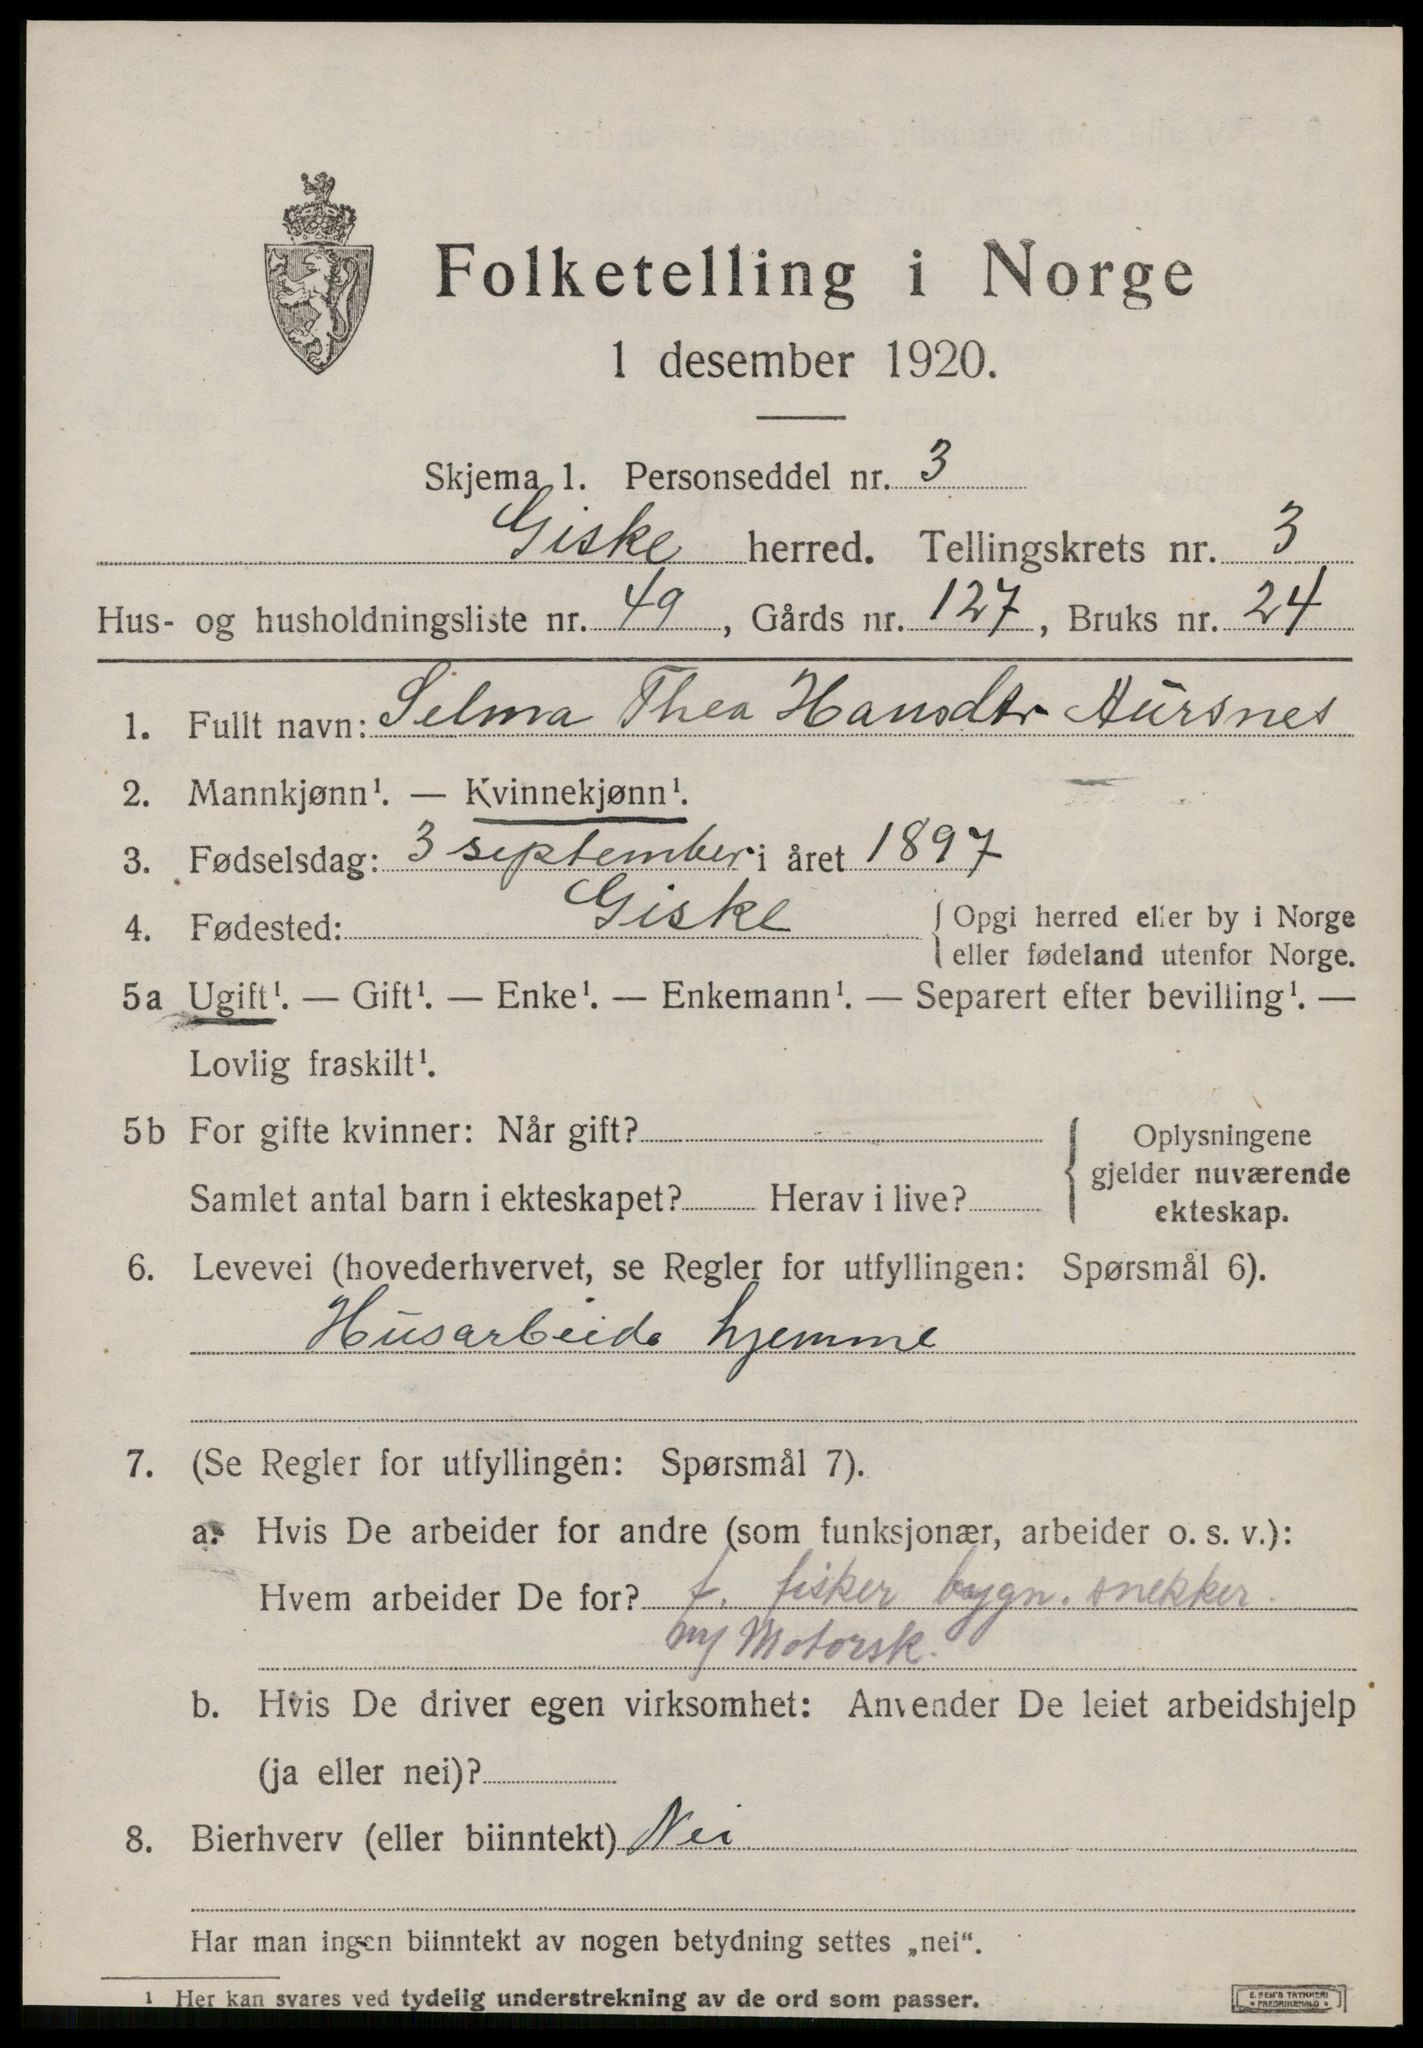 Folketelling i Norge
1 desember 1920.
Skjema 1. Personseddel nr. 3
Giske herred. Tellingskrets nr. 3
Hus- og husholdningsliste nr. 49, Gårds nr. 127, Bruks nr. 24
1. Fullt navn: Selma Thea Hansdtr Aursnes
2. Mannkjønn¹. — Kvinnekjønn¹.
3. Fødselsdag: 3 september i året 1897
4. Fødested: Giske { Opgi herred eller by i Norge
eller fødeland utenfor Norge.
5a Ugift¹. — Gift¹. — Enke¹. — Enkemann¹. — Separert efter bevilling¹. —
Lovlig fraskilt¹.
5b For gifte kvinner: Når gift?
Samlet antal barn i ekteskapet? Herav i live?
Oplysningene
gjelder nuværende
ekteskap.
6. Levevei (hovederhvervet, se Regler for utfyllingen: Spørsmål 6).
Husarbeide hjemme
7. (Se Regler for utfyllingen: Spørsmål 7).
a. Hvis De arbeider for andre (som funksjonær, arbeider o. s. v.):
Hvem arbeider De for? f. fisker bygn. snekker.
Motorsk.
b. Hvis De driver egen virksomhet: Anvender De leiet arbeidshjelp
(ja eller nei)?
8. Bierhverv (eller biinntekt) Nei
Har man ingen biinntekt av nogen betydning settes „nei“.
¹ Her kan svares ved tydelig understrekning av de ord som passer.
E. SEM'S TRYKKERI
FREDRIKSHALD